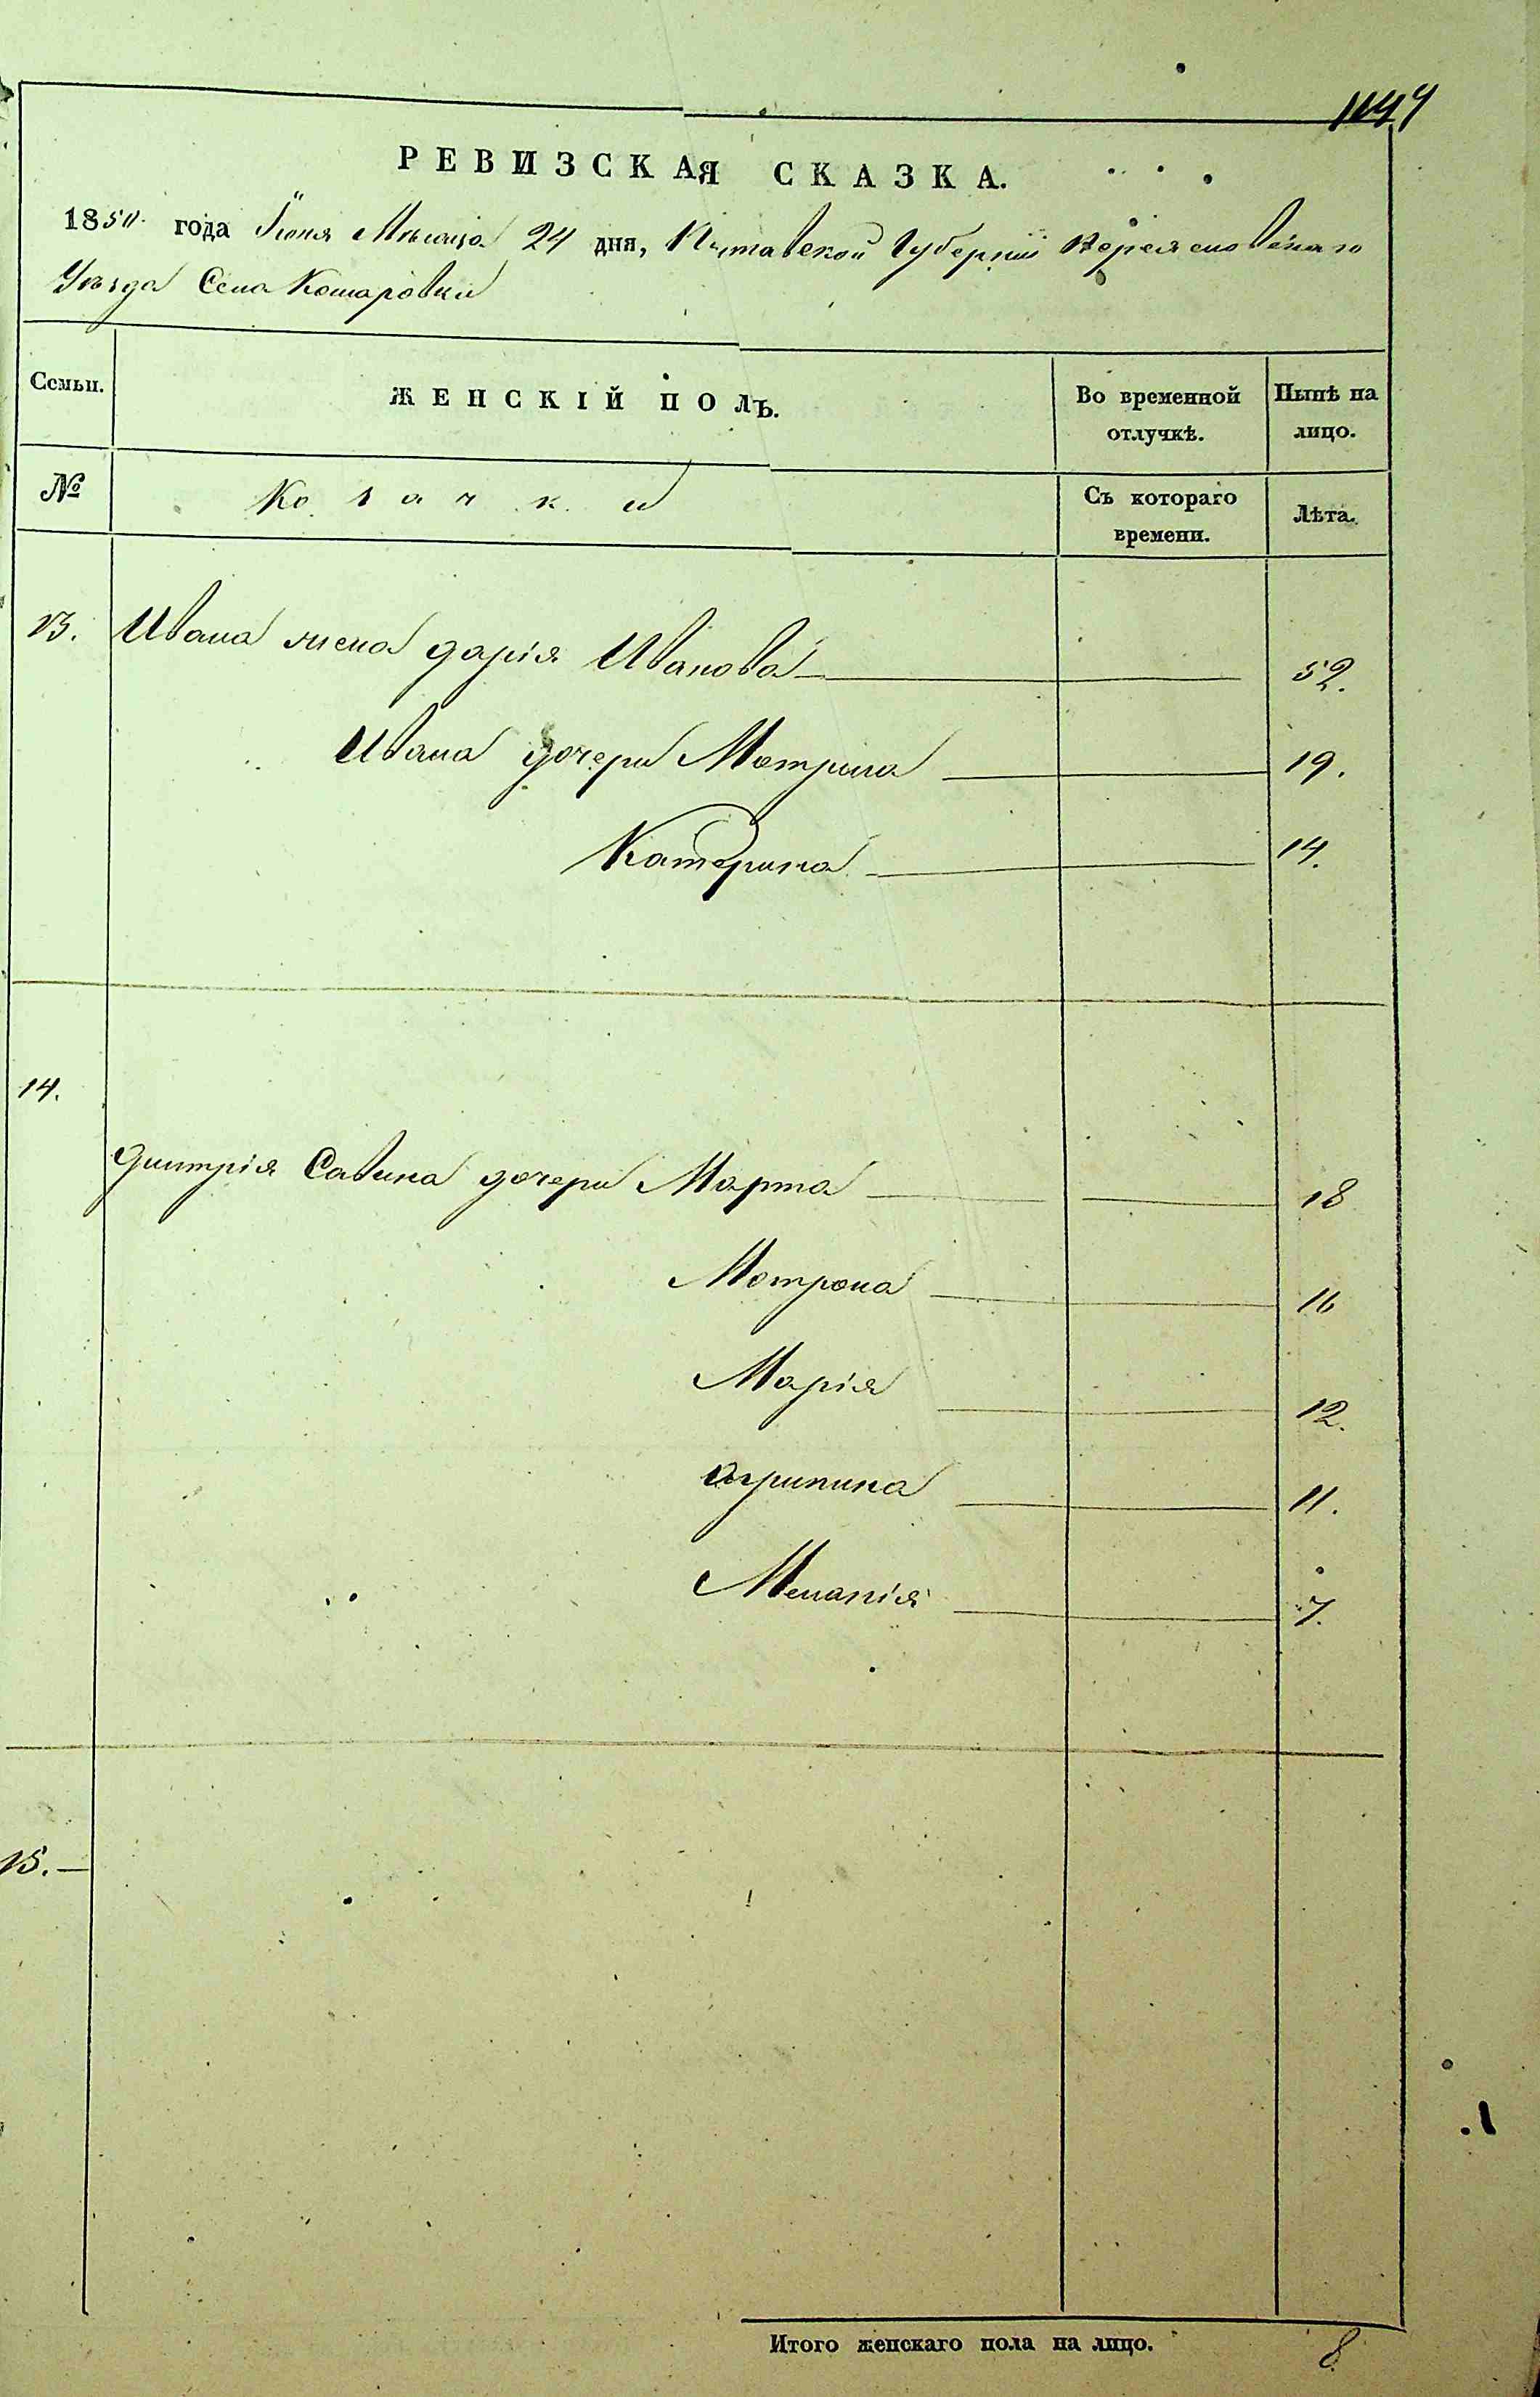 1044
РЕВИЗСКАЯ СКАЗКА.
1850. года Іюня Мѣсяца 24 дня, Полтавской Губерніи Переяславскаго
Уѣзда Села Комаровки
Семьи. ЖЕНСКІЙ ПОЛЪ. Во временной отлучкѣ. Нынѣ на лицо.
№ Козачки Съ котораго времени. Лѣта.
13. Ивана жена Дарія Иванова 52.
Ивана дочери Мотрина 19.
Катерина 14.
14.
Дмитрія Савина дочери Марта 18
Мотрона 16
Марія 12.
Агрипина 11.
Меланія 7.
15. —
Итого женскаго пола на лицо. 8